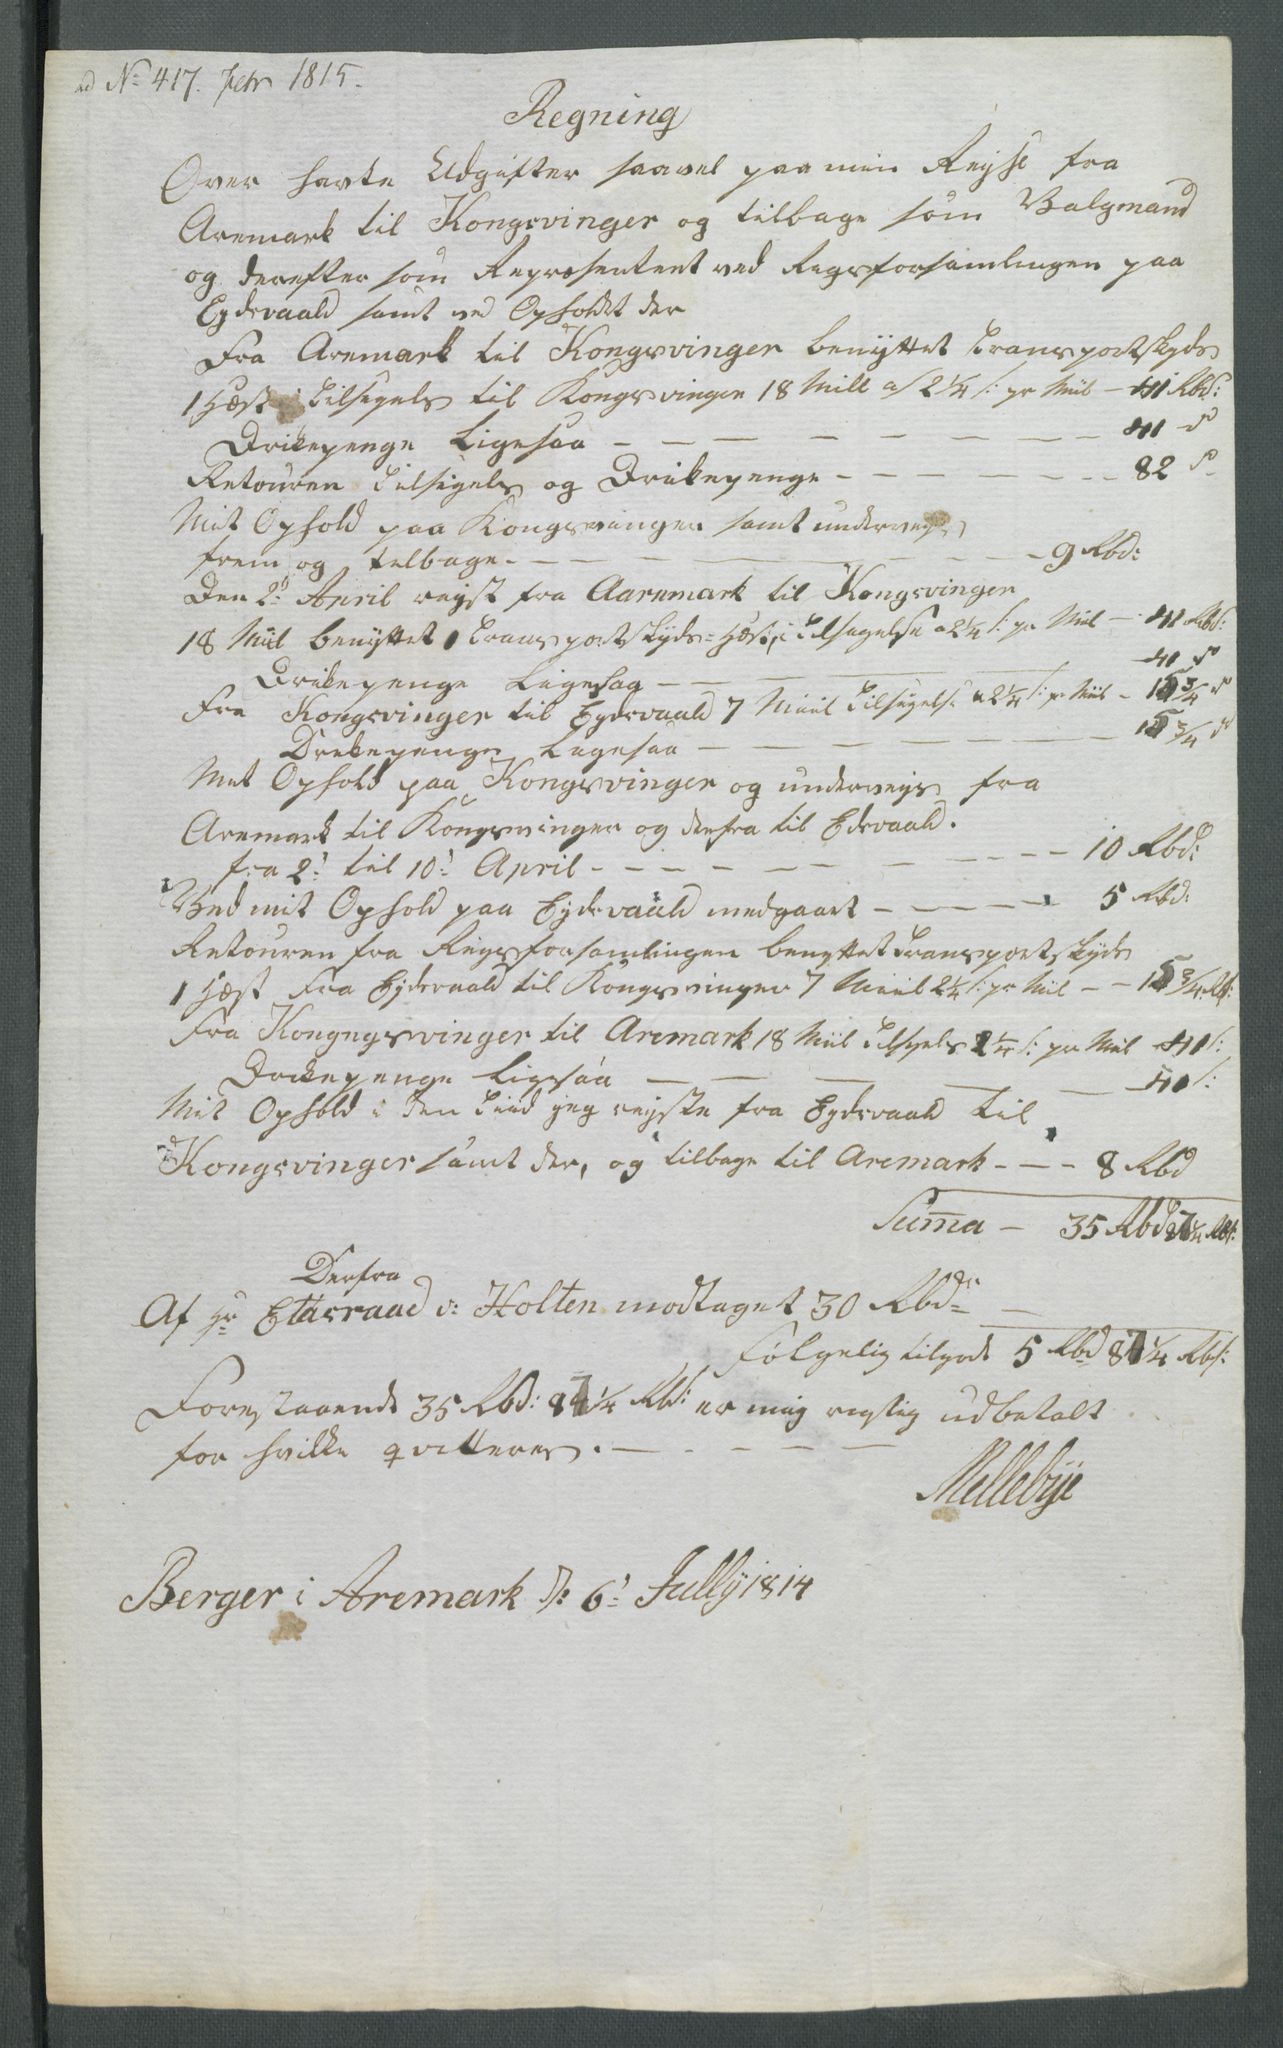 ad No 417. Febr 1815.
Regning
Over havte Udgifter saavel paa min Reyse fra
Aremark til Kongsvinger og tilbage som Valgmand
og derefter som Representent ved Rigsforsamlingen paa
Eydsvaald samt ved Opholdet der
Fra Aremark til Kongsvinger benyttet Transportskyds
1 Hæst i Tilsigels til Kongsvinger 18 Mill a 2 1/4 s: pr Mil — 41 Rbs:
Drikepenge Ligesaa — 41 d°
Retouren Tilsigels og Drikepenge — 82 s
Mit Ophold paa Kongsvinger samt underveys
frem og telbage — 9 Rbd:
Den 2: April reyst fra Aaremark til Kongsvinger
18 Miil benyttet 1 Transportskyds-Hæst, i Tilsigelse a 2 1/4 s: pr Mil — 41 Rbs:
Drikepenge Ligesaa — 41 d°
Fra Kongsvinger til Eydsvaald 7 Miil Tilsigelse a 2 1/4 s: pr Mil — 15 3/4 d°
Drikepenge Ligesaa — 15 3/4 d°
Mit Ophold paa Kongsvinger og underveys fra
Aremark til Kongsvinger og derfra til Edsvaald.
fra 2: til 10: April — 10 Rbd:
Ved mit Ophold paa Eydsvaald medgaaet — 5 Rbd:
Retouren fra Rigsforsamlingen benyttet Transportskyds
1 Hæst Fra Eydsvaald til Kongsvinger 7 Miil 2 1/4 s: pr Mil — 15 3/4 Rbs:
Fra Kongngsvinger til Aremark 18 Miil Tilsigels 2 1/4 s: pr Mil 41 s:
Drikepenge Ligesaa — 41 s:
Mit Ophold i den Tiid jeg reyste fra Eydsvaald til
Kongsvinger samt der, og tilbage til Aremark — 8 Rbd
Suma — 35 Rbd 87 1/4 Rbs:
Derfra
Af Hr Etasraad v: Holten modtaget 30 Rbdr —
Følgelig tilgode 5 Rbd 87 1/4 Rbs:
Forestaaende 35 Rbd: 87 1/4 Rbs: er mig rigtig udbetalt
for hvilke qvitteres. —
Mellebye
Berger i Aremark d: 6: Jully 1814